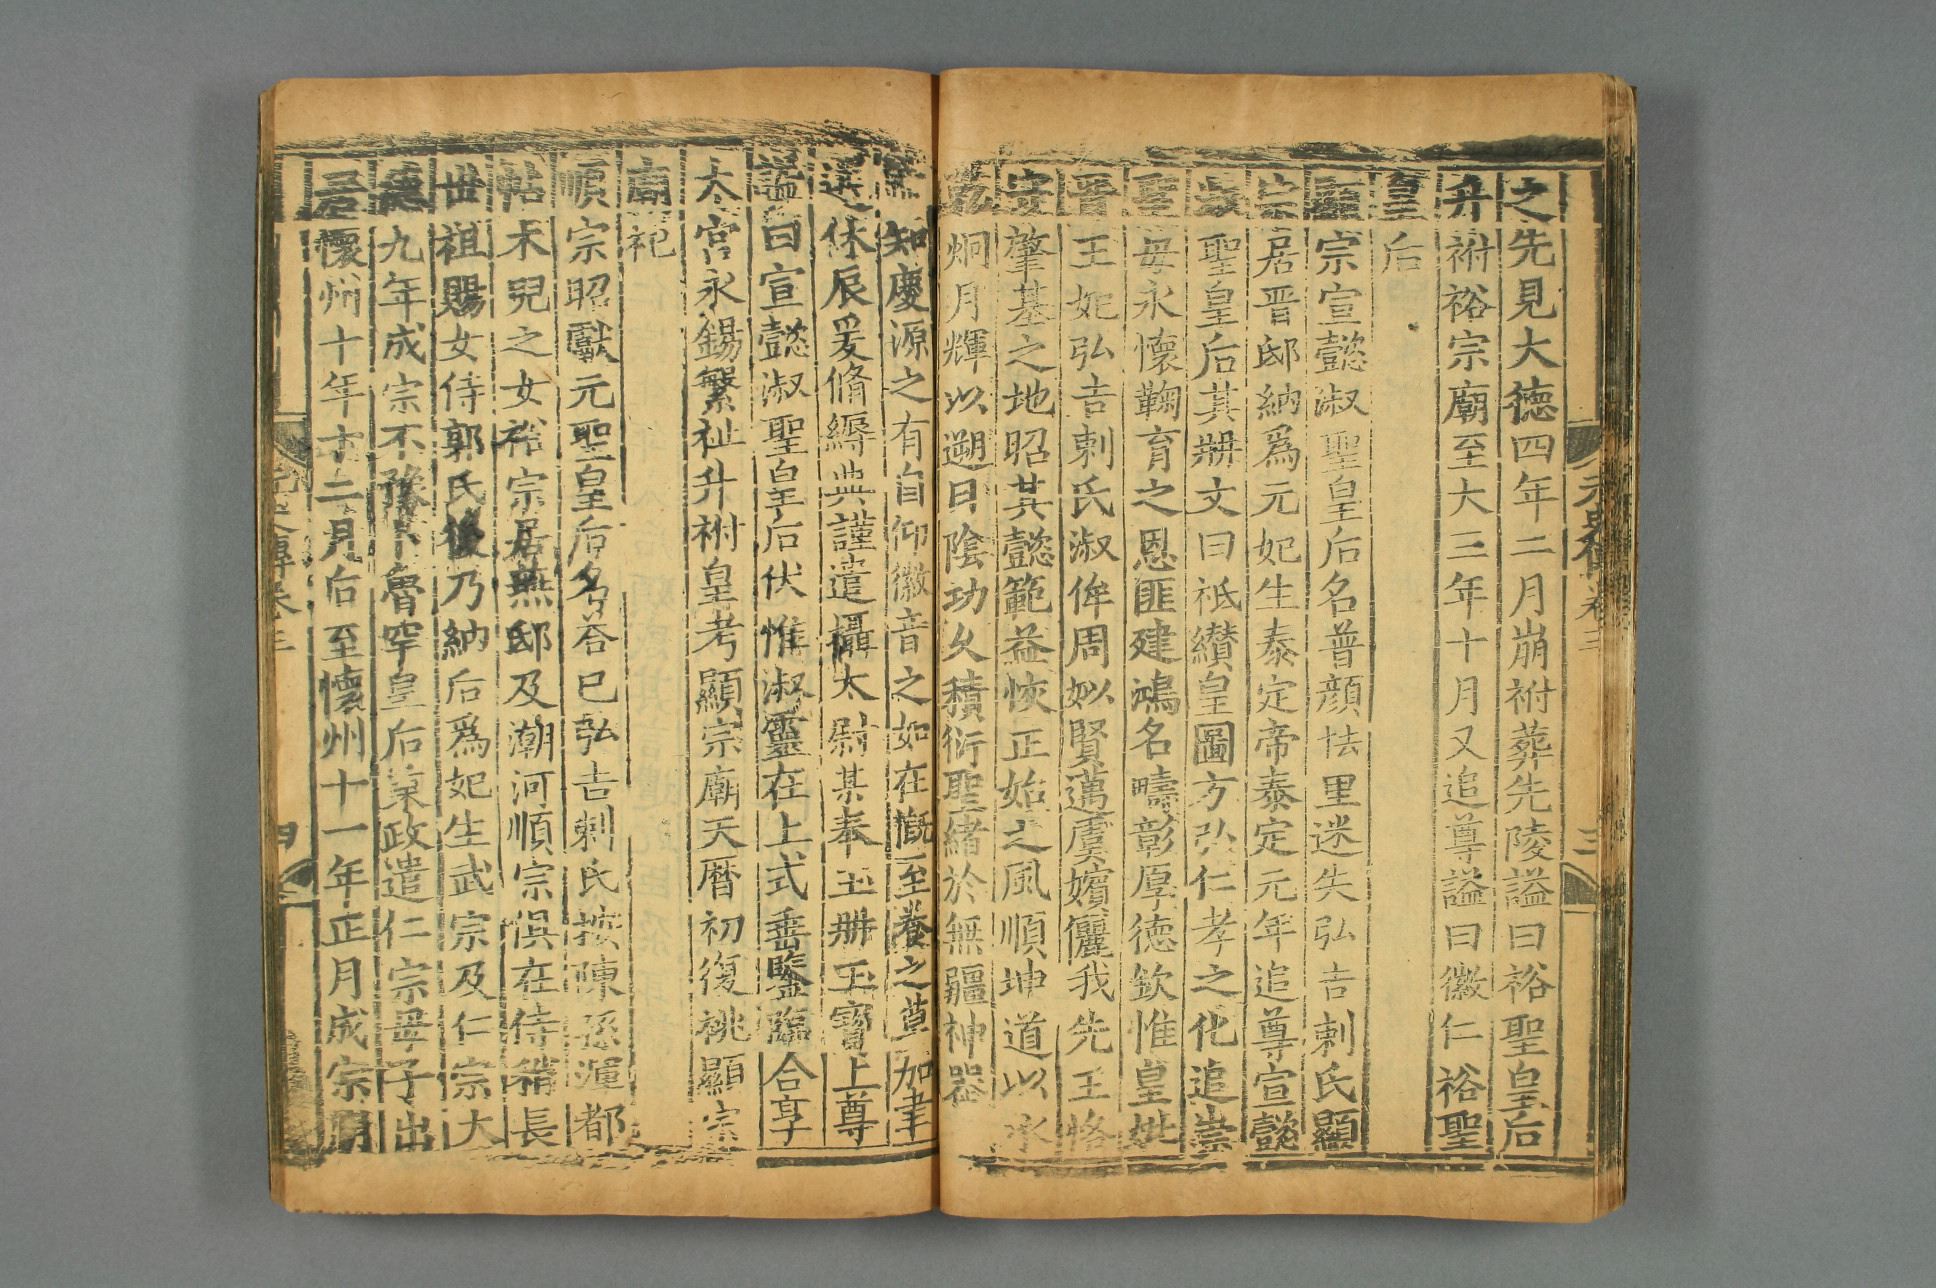 之先見大德四年二月崩祔葬先陵謚曰裕聖皇后
升祔裕宗廟至大三年十月又追尊謚曰徽仁裕聖
皇后
顯宗宣懿淑聖皇后名普顔怯里迷失弘吉剌氏顯
宗居晋邸納爲元妃生泰定帝泰定元年追尊宣懿
淑聖皇后其冊文曰祗纉皇圖方弘仁孝之化追崇
聖母永懷鞠育之恩匪建鴻名疇彰厚德欽惟皇妣
晋王妃弘吉剌氏淑侔周姒賢邁虞嬪儷我先王恪
守肇基之地昭其懿範益恢正始之風順坤道以承
乾炯月輝以遡日陰功久積衍聖緒於無疆神器
知慶源之有自仰徽音之如在慨至養之莫加聿
選休辰爰脩縟典謹遣攝太尉某奉玉冊玉寶上尊
謚曰宣懿淑聖皇后伏惟淑靈在上式垂鑒臨合享
太宮永錫繁祉升祔皇考顯宗廟天曆初復祧顯宗
廟祀
順宗昭獻元聖皇后名荅巳弘吉剌氏按陳孫渾都
帖木兒之女裕宗居燕邸及潮河順宗俱在侍稍長
世祖賜女侍郭氏後乃納后爲妃生武宗及仁宗大
德九年成宗不豫卜魯罕皇后秉政遣仁宗母子出
居懷州十年十二月后至懷州十一年正月成宗崩
元史傳卷三
三
四